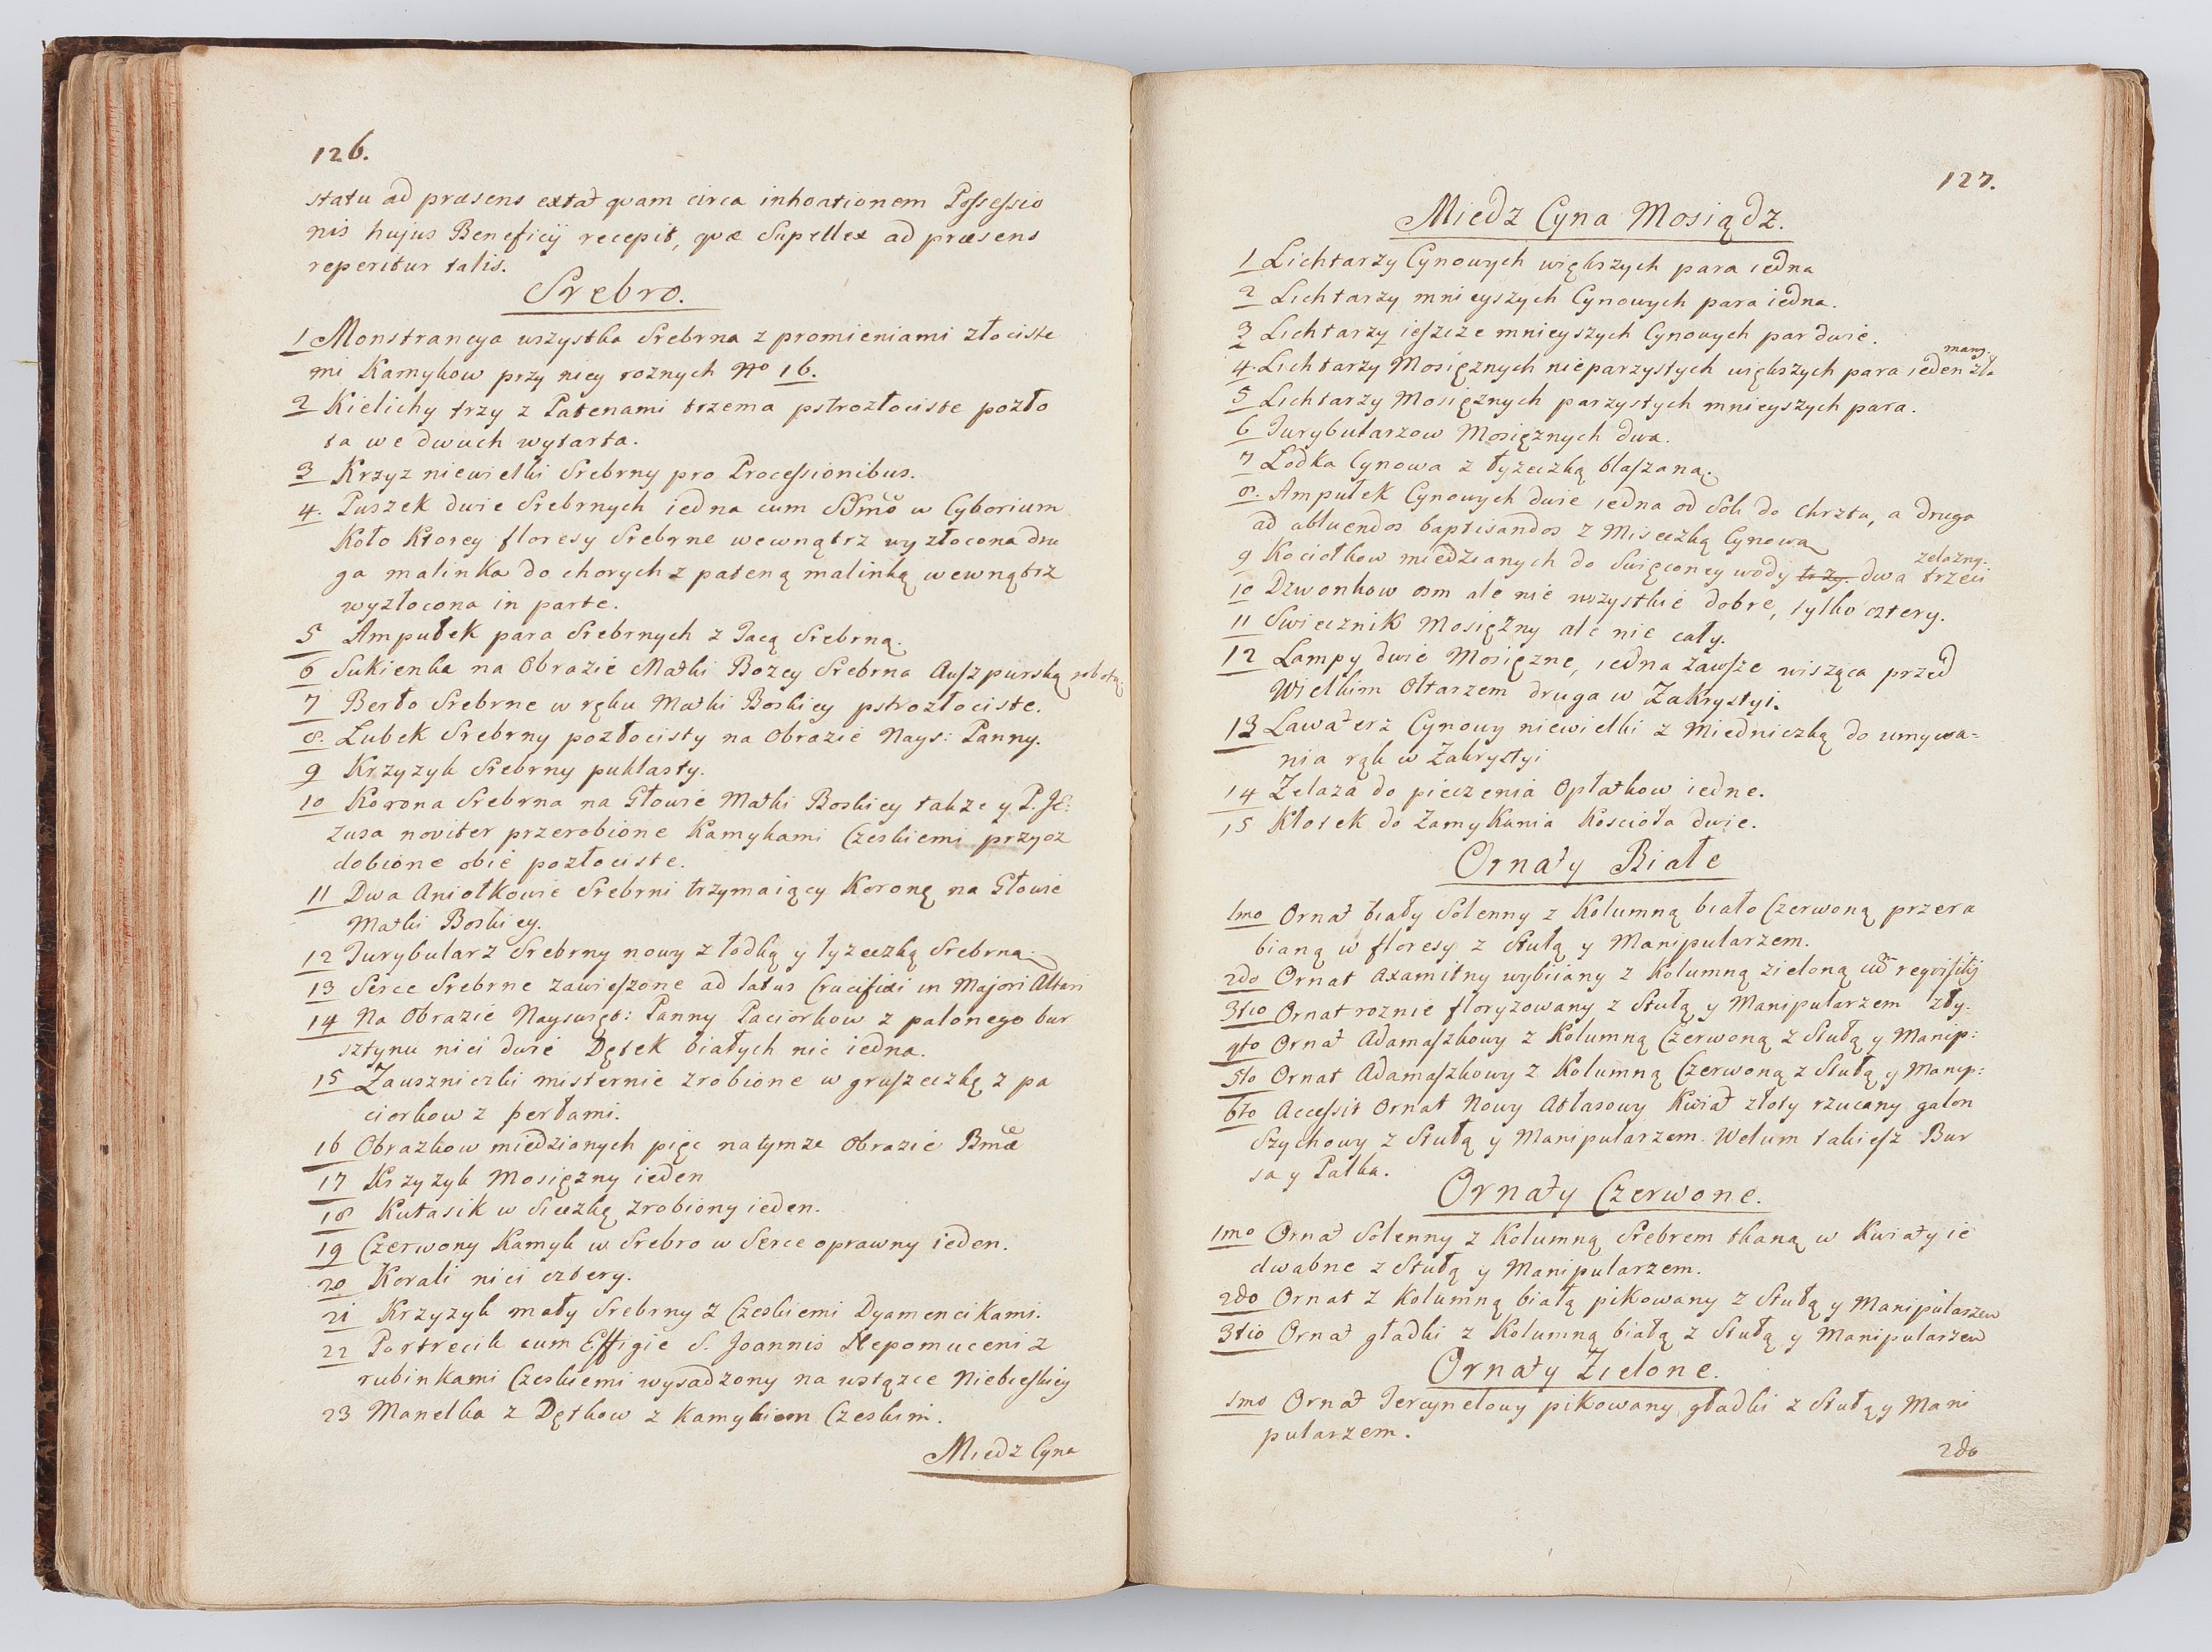 126.
statu ad præsens extat quam circa inhoationem Possessio
nis hujus Beneficij recepit, quæ Supellex ad præsens
reperitur talis.
Srebro.
1 Monstrancya wszystka Srebrna z promieniami złociste
mi Kamykow przy niey roznych No 16.
2 Kielichy trzy z Patenami trzema pstrozłociste pozło
ta we dwuch wytarta.
3 Krzyz niewielki Srebrny pro Processionibus.
4. Puszek dwie Srebrnych iedna cum SSmo w Cyborium
Koło Ktorey floresy Srebrne wewnątrz wyzłocona dru
ga malinka do chorych z pateną malinką wewnątrz
wyzłocona in parte.
5 Ampułek para Srebrnych z Tacą Srebrną.
6 Sukienka na Obrazie Matki Bozey Srebrna Auszpurską robotą
7 Berło Srebrne w ręku Matki Boskiey pstrozłociste.
8. Lubek Srebrny pozłocisty na Obrazie Nays: Panny.
9 Krzyzyk Srebrny puklasty.
10 Korona Srebrna na Głowie Matki Boskiey takze y P. Je:
zusa noviter przerobione Kamykami Czeskiemi przyoz
dobione obie pozłociste.
11 Dwa Aniołkowie Srebrni trzymaiący Koronę na Głowie
Matki Boskiey.
12 Turybularz Srebrny nowy z łodką y lyzeczką Srebrną
13 Serce Srebrne zawieszone ad latus Crucifixi in Majori Altari
14 Na Obrazie Nayswięt: Panny Paciorkow z palonego bur
sztynu nici dwie Dętek białych nic iedna.
15 Zauszniczki misternie zrobione w gruszeczkę z pa
ciorkow z perłami.
16 Obrazkow miedzionych pięc natymze Obrazie Bmæ
17 Krzyzyk Mosięzny ieden
18 Kutasik w Sieczkę zrobiony ieden.
19 Czerwony Kamyk w Srebro w Serce oprawny ieden.
20 Korali nici cztery.
21 Krzyzyk mały Srebrny z Czeskiemi Dyamencikami.
22 Portrecik cum Effigie S. Joannis Nepomuceni z
rubinkami Czeskiemi wysadzony na wstązce Niebieskiey
23 Manelka z Dętkow z Kamykiem Czeskim.
Miedz Cyna
127.
Miedz Cyna Mosiądz.
1 Lichtarzy Cynowych większych para iedna
2 Lichtarzy mnieyszych Cynowych para iedna.
3 Lichtarzy ieszcze mnieyszych Cynowych par dwie.
4. Lichtarzy Mosięznych nieparzystych większych para ieden
5 Lichtarzy Mosięznych parzystych mnieyszych para.
6 Turybularzow Mosięznych dwa.
7 Lodka Cynowa z łyzeczką blaszaną.
8. Ampułek Cynowych dwie iedna od Soli do Chrztu, a druga
ad abluendos baptisandos z Miseczką Cynową
9 Kociołkow miedzianych do Swięconey wody trzy. dwa trzeci zelazny.
10 Dzwonkow osm ale nie wszystkie dobre, tylko cztery.
11 Swiecznik Mosięzny ale nie cały.
12 Lampy dwie Mosięzne, iedna zawsze wisząca przed
Wielkim Ołtarzem druga w Zakrystyi.
13 Lawaterz Cynowy niewielki z Miedniczką do umywa=
nia rąk w Zakrystyi
14 Zelaza do pieczenia Opłatkow iedne.
15 Kłotek do Zamykania Kościoła dwie.
Ornaty Białe
1mo Ornat biały Solenny z Kolumną biało Czerwoną przera
bianą w floresy z Stułą y Manipularzem.
2do Ornat Axamitny wybiiany z Kolumną zieloną cū requisitij
3tio Ornat roznie floryzowany z Stułą y Manipularzem zły.
4to Ornat Adamaszkowy z Kolumną Czerwoną z Stułą y Manip:
5to Ornat Adamaszkowy z Kolumną Czerwoną z Stułą y Manip:
6to Accessit Ornat Nowy Atłasowy Kwiat złoty rzucany galon
Szychowy z Stułą y Manipularzem. Welum takiesz Bur
sa y Palka.
Ornaty Czerwone.
1mo Ornat Solenny z Kolumną Srebrem tkaną w Kwiaty ie
dwabne z Stułą y Manipularzem.
2do Ornat z Kolumną białą pikowany z Stułą y Manipularzem
3tio Ornat gładki z Kolumną białą z Stułą y Manipularzem
Ornaty Zielone.
1mo Ornat Tercynelowy pikowany gładki z Stułą y Mani
pularzem.
2do